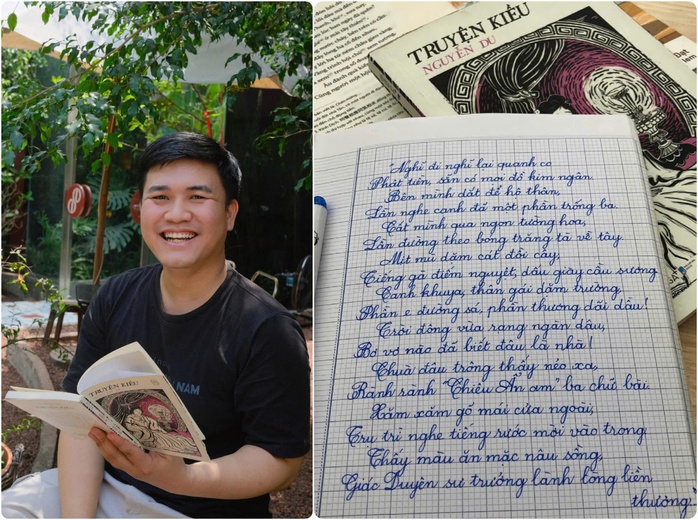 TRUYỆN KIỀU
NAM
TRUYỆN KIỀU
NGUYỄN DU
Nghĩ đi nghĩ lại quanh co
Phật tiền, sẵn có mọi đồ kim ngân.
Bên mình dắt để hộ thân,
Lần nghe canh đã một phần trống ba.
Cất mình qua ngọn tường hoa,
Lần đường theo bóng trăng tà về tây.
Mịt mù dặm cát đồi cây,
Tiếng gà điếm nguyệt, dấu giày cầu sương
Canh khuya, thân gái dặm trường,
Phần e đường sá, phần thương dãi dầu!
Trời đông vừa rạng ngàn dâu,
Bơ vơ nào đã biết đâu là nhà!
Chùa đâu trông thấy nẻo xa,
Rành rành "Chiêu Ẩn am" ba chữ bài.
Xăm xăm gõ mái cửa ngoài,
Trụ trì nghe tiếng rước mời vào trong
Thấy màu ăn mặc nâu sồng,
Giác Duyên sư trưởng lành lòng liền
thương.